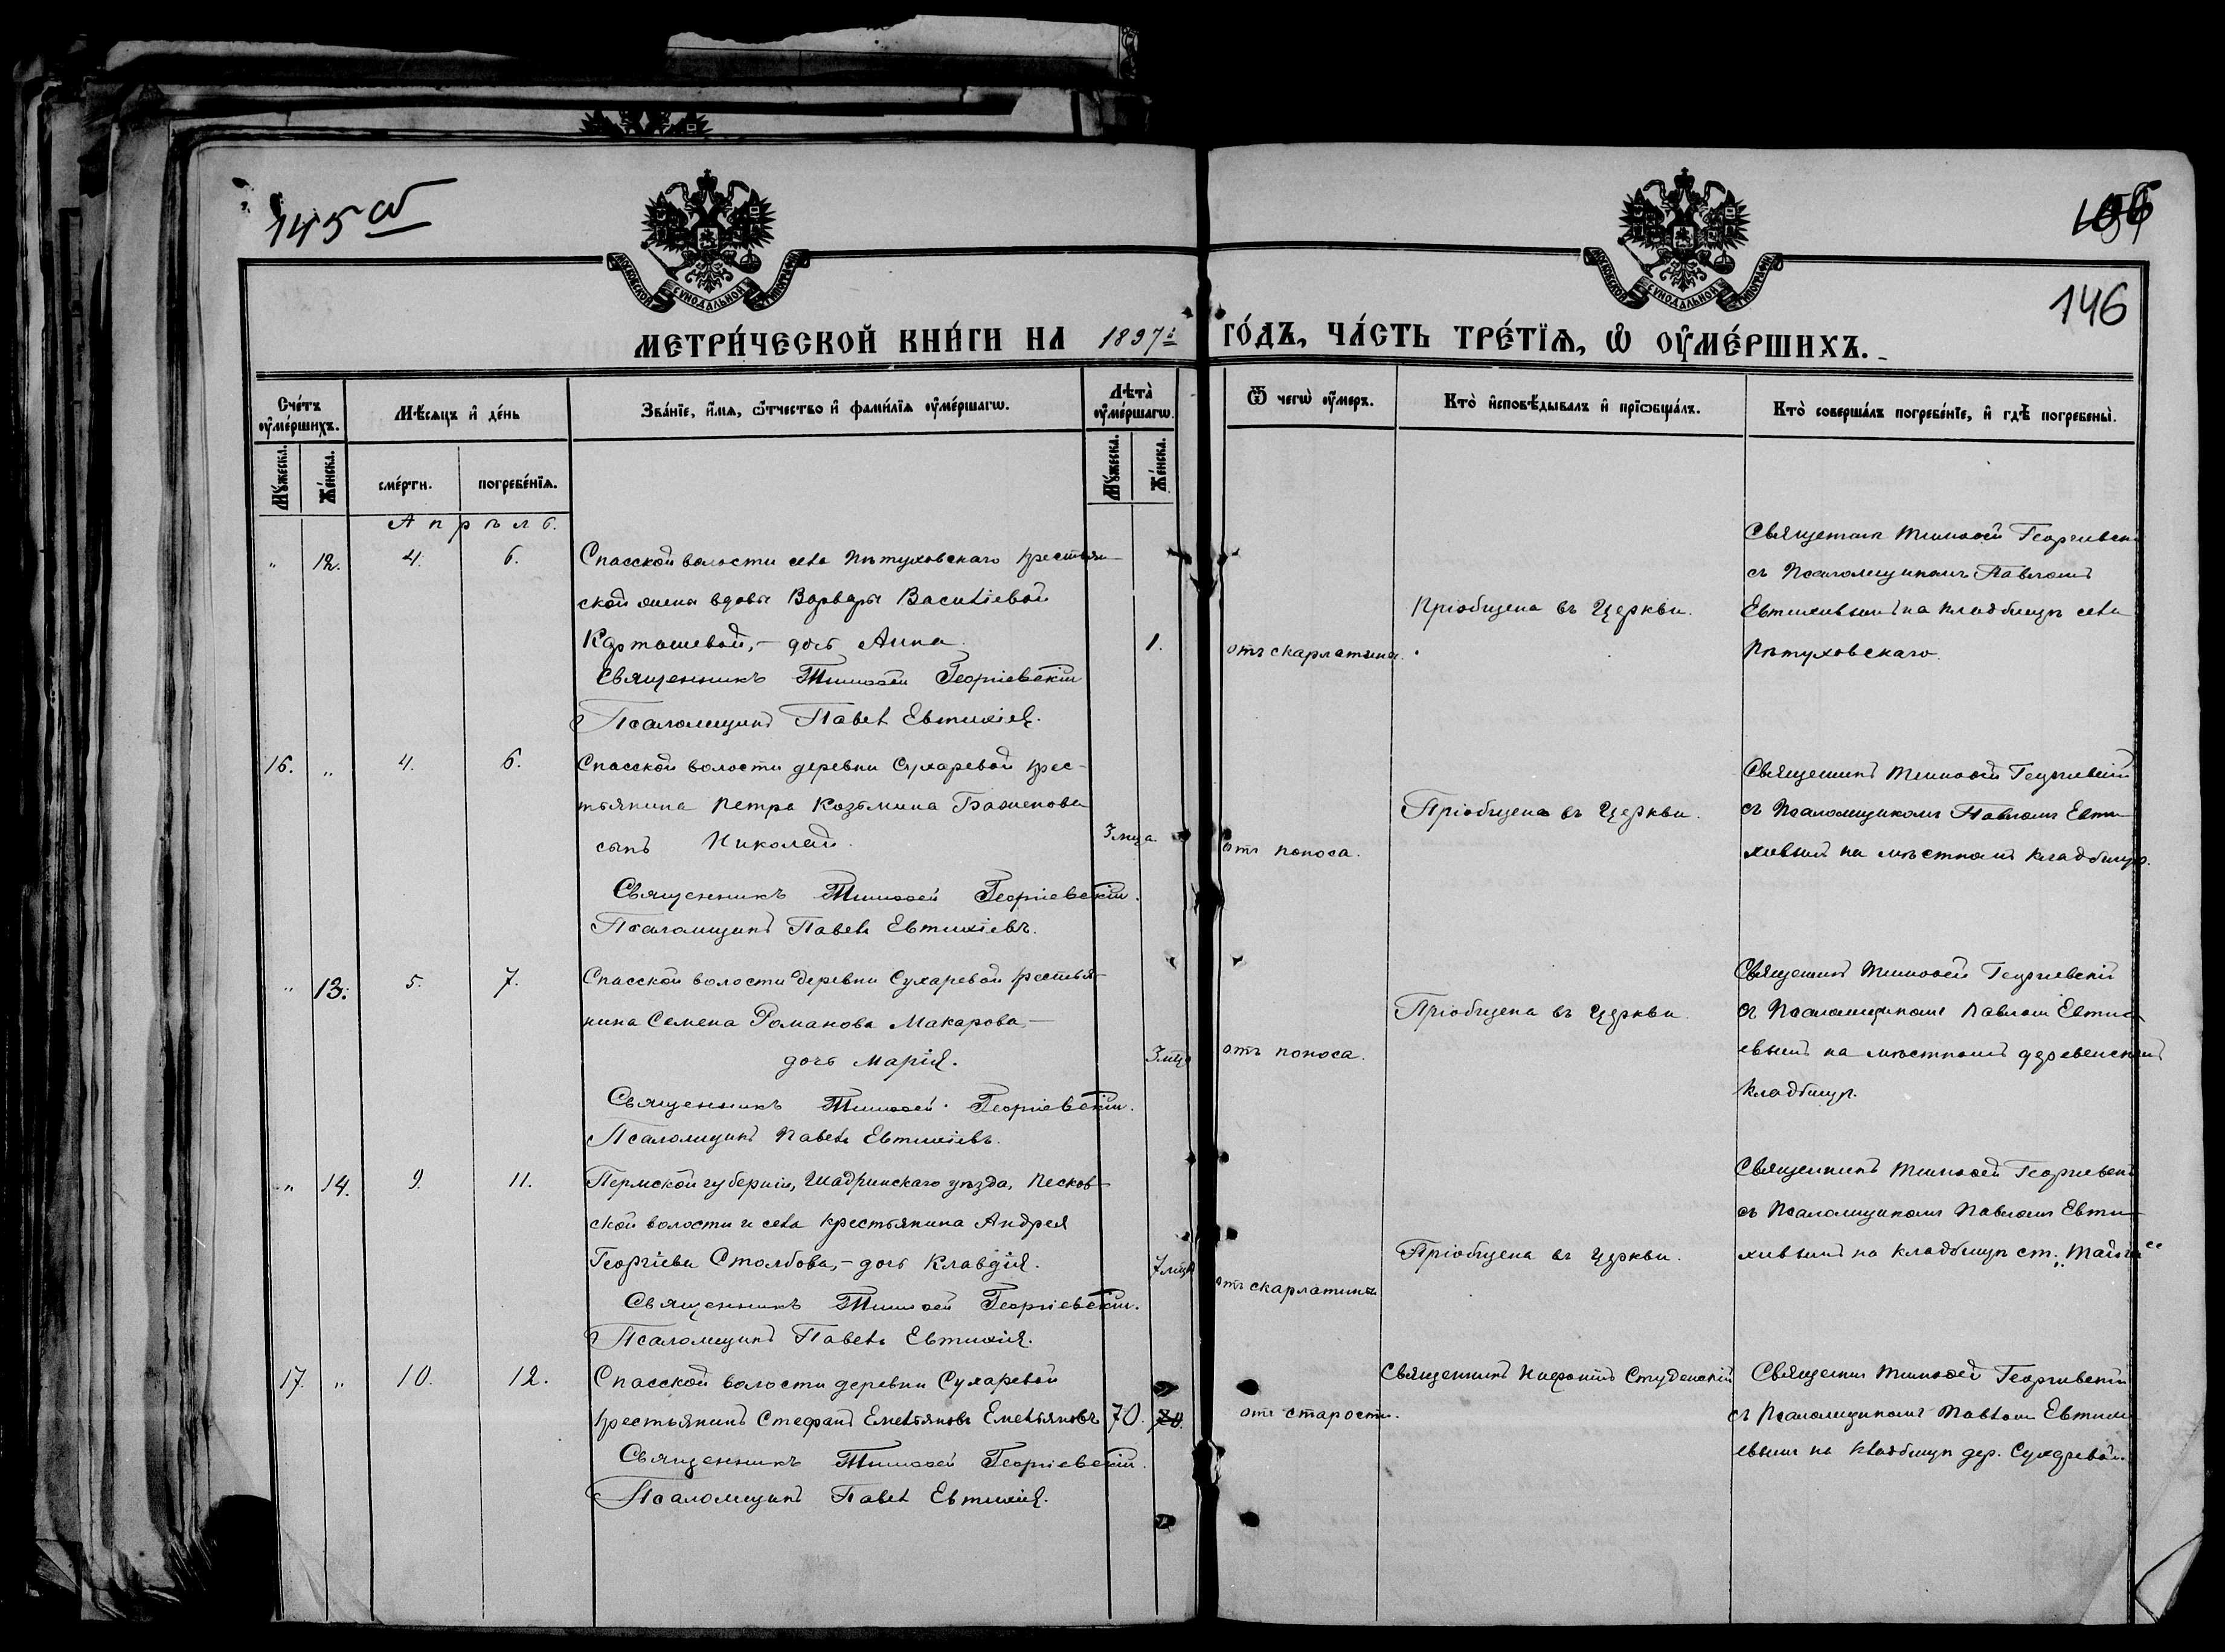 145 об
156
146
МОСКОВСКОЙ СѴНОДАЛЬНОЙ ТИПОГРАФІИ
МОСКОВСКОЙ СѴНОДАЛЬНОЙ ТИПОГРАФІИ
МЕТРИ́ЧЕСКОЙ КНИ́ГИ НА 1897й ГО́ДЪ, ЧА́СТЬ ТРЕ́ТЇѦ, Ѡ҆ ОУ҆МЕ́РШИХЪ.
Сче́тъ оу҆ме́ршихъ.
Мѣ́сяцъ и҆ де́нь
Зва́нїе, и҆́мѧ, ѻ҆́тчество и҆ фами́лїѧ оу҆ме́ршагѡ.
Лѣта̀ оу҆ме́ршагѡ.
Ѿ чегѡ̀ оу҆́меръ.
Кто̀ и҆сповѣ́дывалъ и҆ прїѡбща́лъ.
Кто̀ соверша́лъ погребе́нїе, и҆ гдѣ̀ погребены̀.
Мꙋ́жеска.
Же́нска.
сме́рти.
погребе́нїѧ.
Мꙋ́жеска.
Же́нска.
Апрѣль.
" 12. 4. 6.
Спасской волости села Пѣтуховскаго крестьян-
ской жены вдовы Варвары Василіевой
Карташевой, - дочь Анна 1.
Священникъ Тимоѳей Георгіевскій
Псаломщикъ Павелъ Евтихіевъ.
отъ скарлатины.
Пріобщена въ Церкви.
Священникъ Тимоѳей Георгіевскій
съ Псаломщикомъ Павломъ
Евтихіевымъ на кладбищѣ села
Пѣтуховскаго.
16. " 4. 6.
Спасской волости деревни Сухаревой крес-
тьянина Петра Козьмина Баженова
сынъ Николай. 3 мца.
Священникъ Тимоѳей Георгіевскій.
Псаломщикъ Павелъ Евтихіевъ.
отъ поноса.
Пріобщена въ Церкви.
Священникъ Тимоѳей Георгіевскій
съ Псаломщикомъ Павломъ Евти-
хіевымъ на мѣстномъ кладбищѣ.
" 13. 5. 7.
Спасской волости деревни Сухаревой крестья-
нина Семена Романова Макарова, -
дочь Марія. 3 мца
Священникъ Тимоѳей Георгіевскій.
Псаломщикъ Павелъ Евтихіевъ.
отъ поноса.
Пріобщена въ Церкви.
Священникъ Тимоѳей Георгіевскій
съ Псаломщикомъ Павломъ Евтихі-
евымъ на мѣстномъ деревенскомъ
кладбищѣ.
" 14. 9. 11.
Пермской губерніи, Шадринскаго уѣзда, Песков-
ской волости и села крестьянина Андрея
Георгіева Столбова, - дочь Клавдія. 7 мца
Священникъ Тимоѳей Георгіевскій.
Псаломщикъ Павелъ Евтихіевъ.
отъ скарлатины
Пріобщена въ Церкви.
Священникъ Тимоѳей Георгіевскій
съ Псаломщикомъ Павломъ Евти-
хіевымъ на кладбищѣ ст. „Тайга“
17. " 10. 12.
Спасской волости деревни Сухаревой
крестьянинъ Стефанъ Емельяновъ Емельяновъ 70. 70.
Священникъ Тимоѳей Георгіевскій.
Псаломщикъ Павелъ Евтихіевъ.
отъ старости.
Священникъ Студенскій
Священникъ Тимоѳей Георгіевскій
съ Псаломщикомъ Павломъ Евтихі-
евымъ на кладбищѣ дер. Сухаревой.